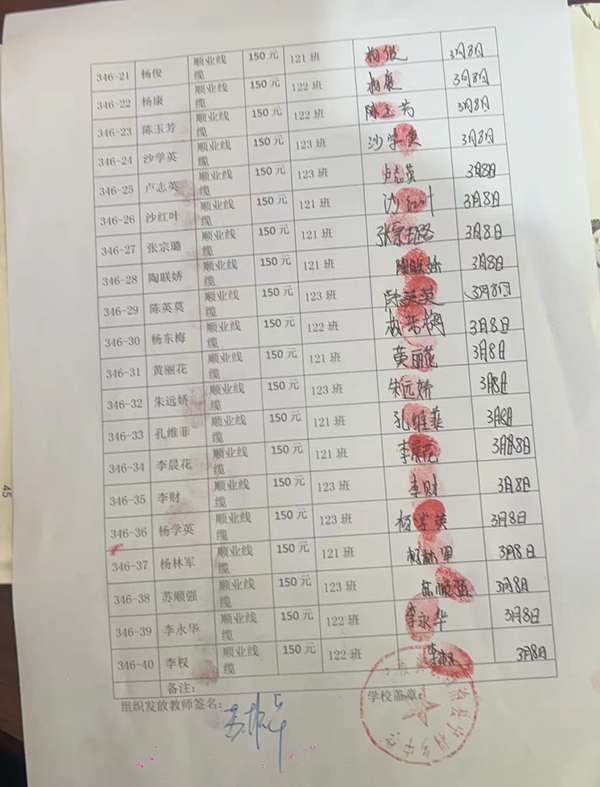 346-21 杨俊 顺业线缆 150元 121班 杨俊 3月8日
346-22 杨康 顺业线缆 150元 122班 杨康 3月8日
346-23 陈玉芳 顺业线缆 150元 122班 陈玉芳 3月8日
346-24 沙学英 顺业线缆 150元 123班 沙学英 3月8日
346-25 卢志英 顺业线缆 150元 123班 卢志英 3月8日
346-26 沙红叶 顺业线缆 150元 121班 沙红叶 3月8日
346-27 张宗璐 顺业线缆 150元 121班 张宗璐 3月8日
346-28 陶联娇 顺业线缆 150元 121班 陶联娇 3月8日
346-29 陈英莫 顺业线缆 150元 123班 3月8日
346-30 杨东梅 顺业线缆 150元 122班 3月8日
346-31 黄丽花 顺业线缆 150元 121班 黄丽花 3月8日
346-32 朱远娇 顺业线缆 150元 123班 朱远娇 3月8日
346-33 孔维菲 顺业线缆 150元 121班 孔维菲 3月8日
346-34 李晨花 顺业线缆 150元 121班 李晨花 3月8日
346-35 李财 顺业线缆 150元 123班 李财 3月8日
346-36 杨学英 顺业线缆 150元 123班 杨学英 3月8日
346-37 杨林军 顺业线缆 150元 121班 杨林军 3月8日
346-38 苏顺强 顺业线缆 150元 123班 苏顺强 3月8日
346-39 李永华 顺业线缆 150元 122班 李永华 3月8日
346-40 李权 顺业线缆 150元 122班 李权 3月8日
备注：
组织发放教师签名： 学校盖章：
45